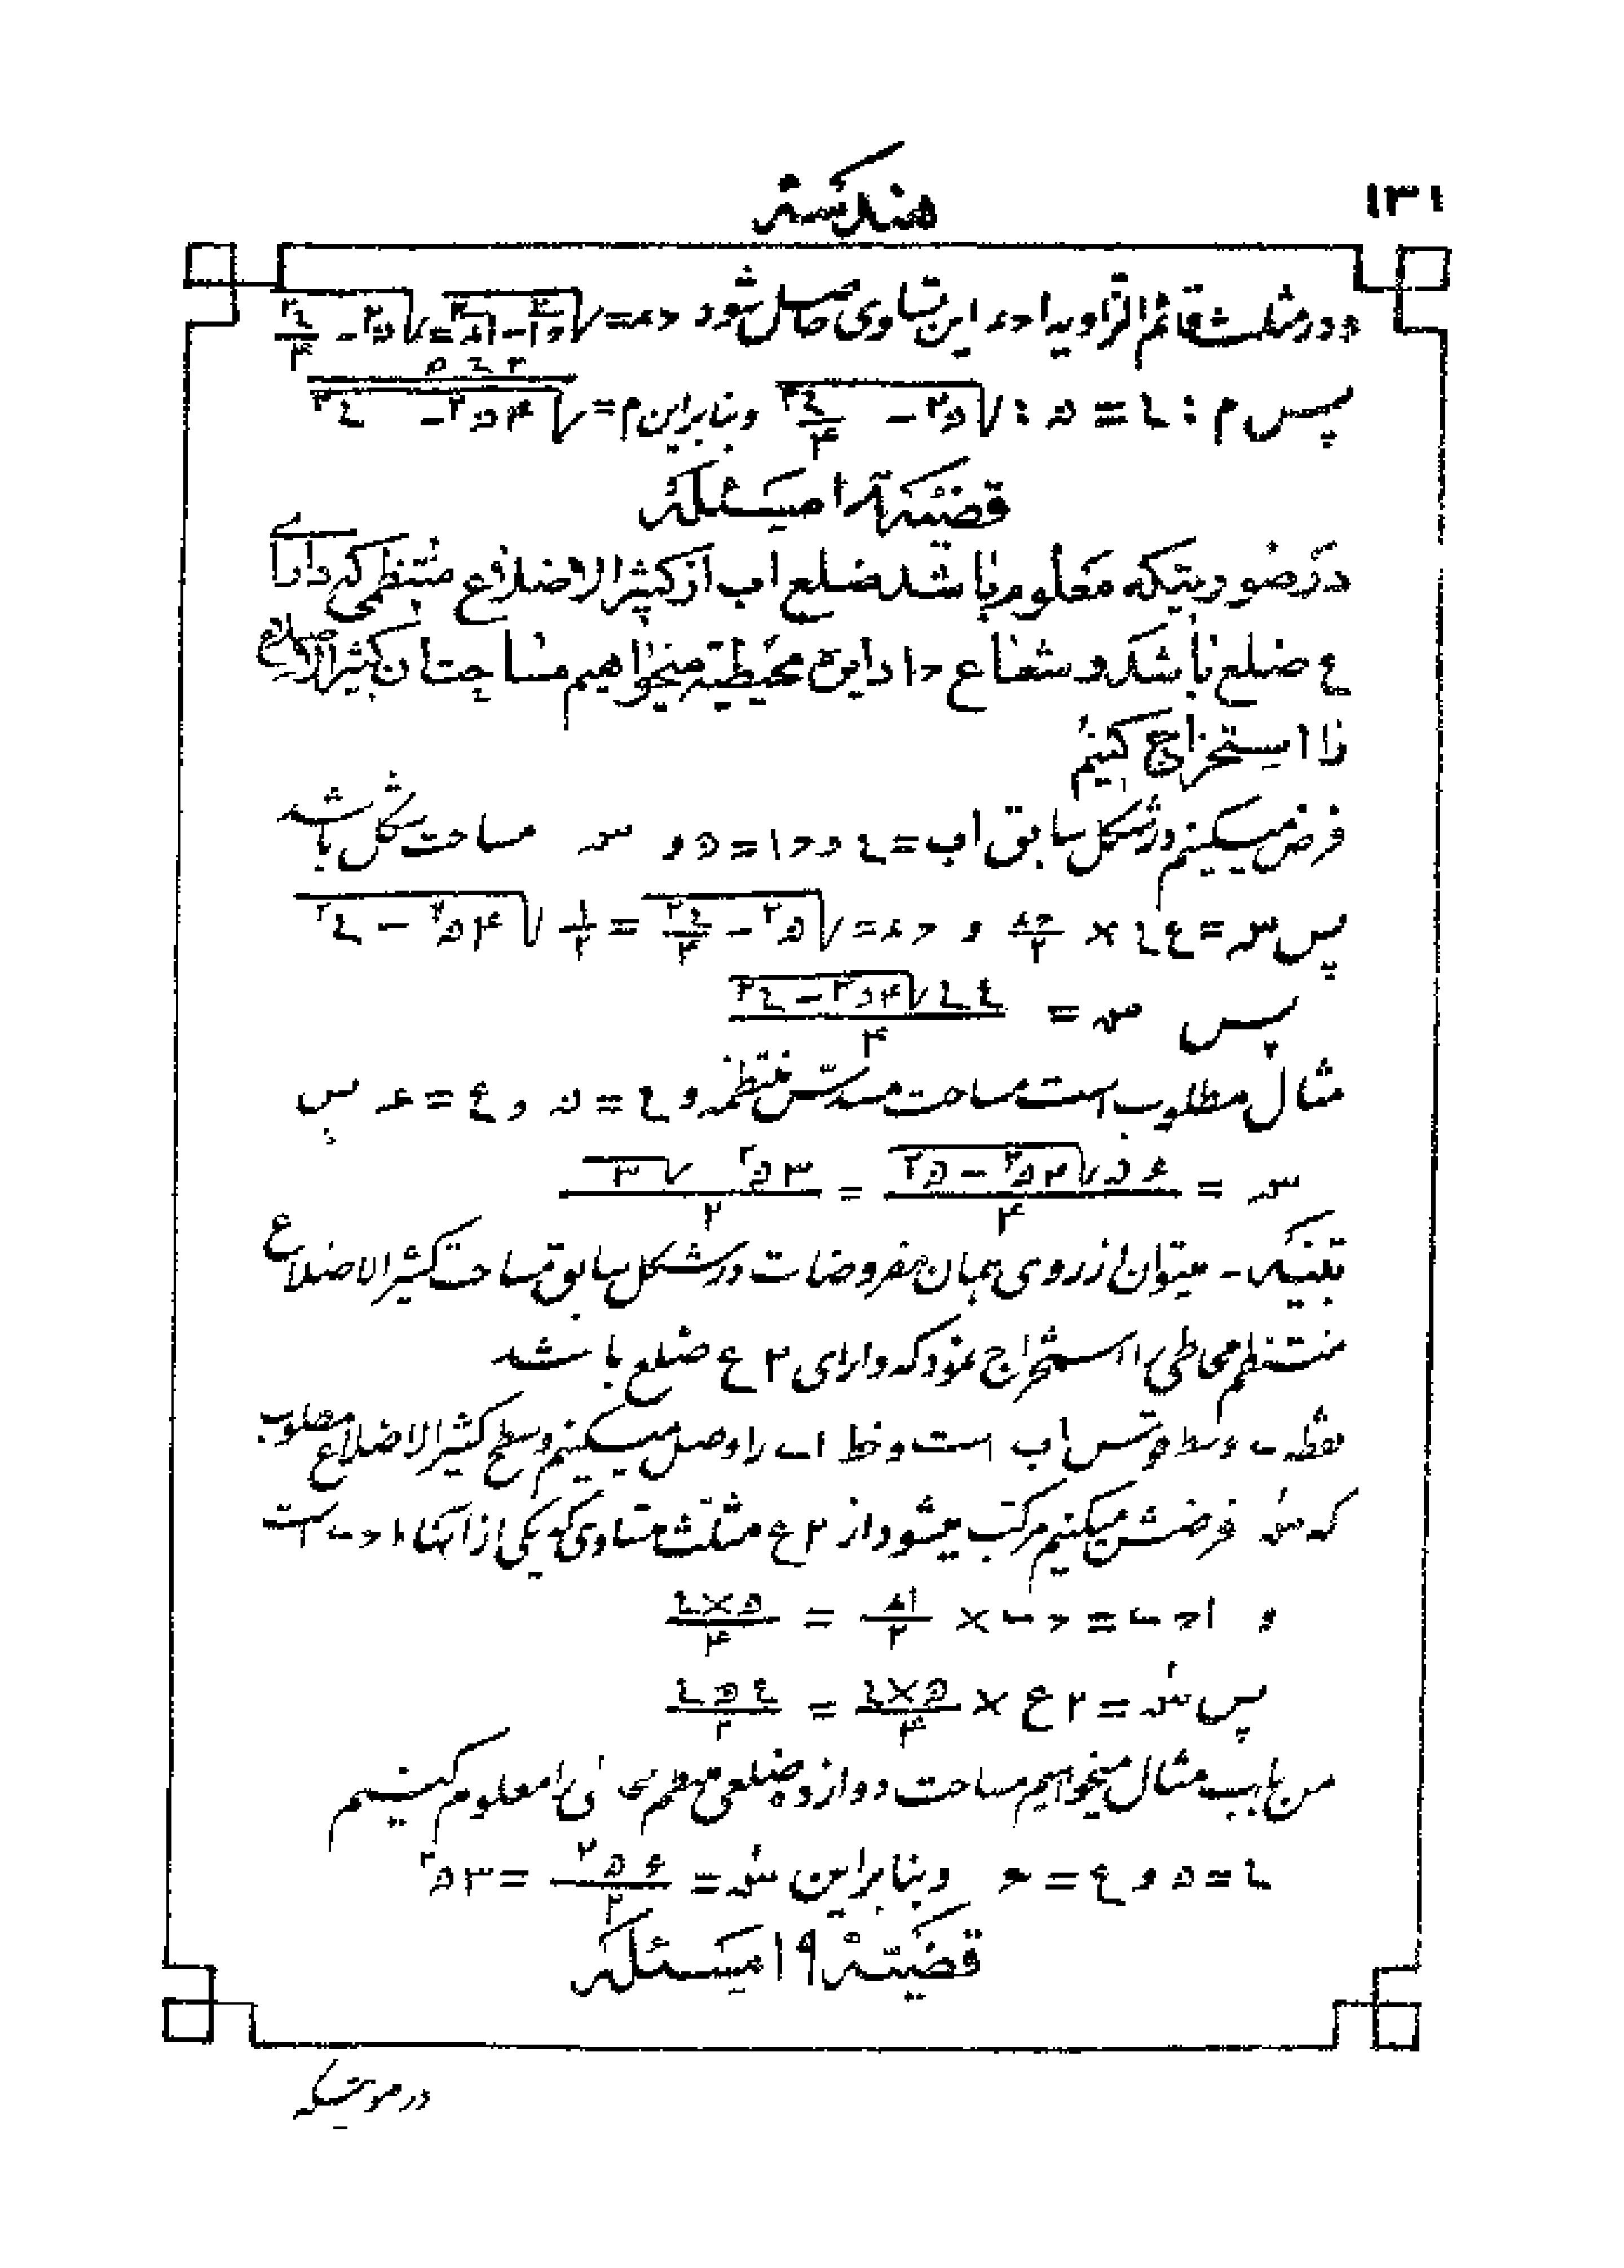 ۱۳۱ هندسه
و در مثلث قائم الزاویه احد این تساوی حاصل شود حد=√(حا۲-اد۲)=√(ه۲-ے۲/۴)
پس م : ے = ه : √(ه۲-ے۲/۴) و بنابراین م = ۲ ے ه / √(۴ه۲-ے۲)
مسئله
در صورتیکه معلوم باشد ضلع اب از کثیر الاضلاع منتظمی که دارای
ع ضلع باشد و شعاع حا دایره محیطیه میخواهیم مساحت ان کثیر الاضلاع
را استخراج کنیم
فرض میکنیم در شکل سابق اب=ے و حا=ه و سـ مساحت شکل باشد
پس سـ=ع ے × حد/۲ و حد=√(ه۲-ے۲/۴)=۱/۲ √(۴ه۲-ے۲)
پس سـ = ع ے √(۴ه۲-ے۲) / ۴
مثال مطلوب است مساحت مسدس منتظم و ے=ه و ع=۶ پس
سـ = ۶ه √(۴ه۲-ه۲) / ۴ = ۳ه۲ √۳ / ۲
تنبیه - میتوان از روی همان مفروضات در شکل سابق مساحت کثیر الاضلاع
منتظم محاطی را استخراج نمود که دارای ۲ع ضلع باشد
نقطه ب وسط قوس اب است و خط اب را وصل میکنیم و سطح کثیر الاضلاع مطلوب
که سَـ فرضش میکنیم مرکب میشود از ۲ع مثلث متساوی که یکی از آنها احب است
و احب = حب × اد/۲ = ه×ے/۴
پس سَـ = ۲ع × ه×ے/۴ = ع ه ے/۲
من باب مثال میخواهیم مساحت دوازده ضلعی منتظم محاطی را معلوم کنیم
ے=ه و ع=۶ و بنابراین سَـ = ۶ه۲/۲ = ۳ه۲
قضیه ۱۹ مسئله
در صورتیکه